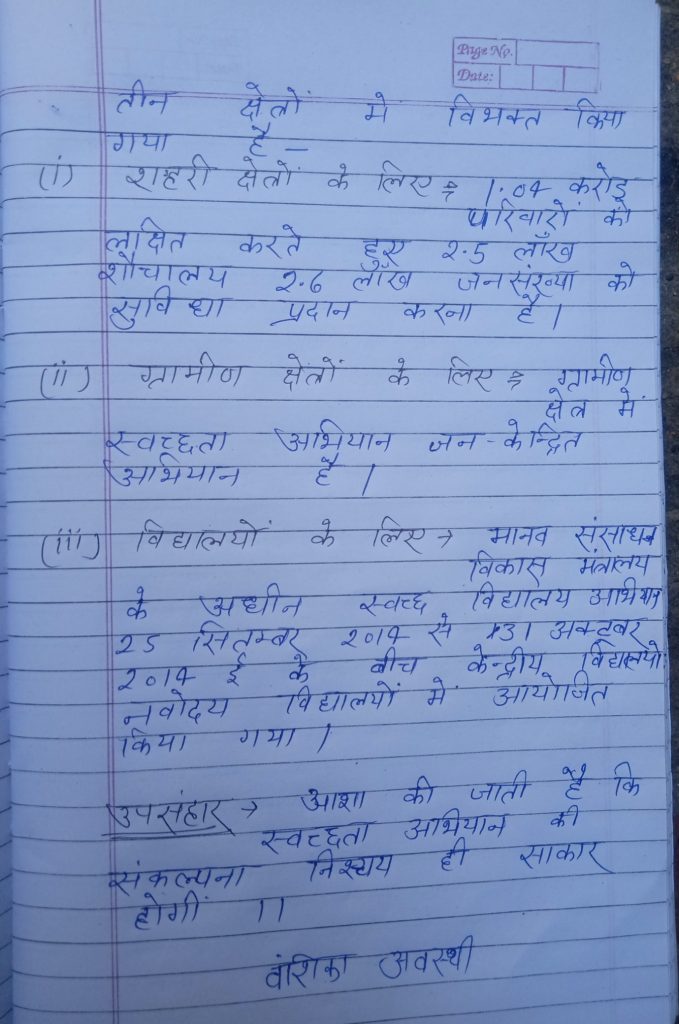 Page No.
Date:
तीन क्षेत्रों मे विभक्त किया
गया है –
(i) शहरी क्षेत्रों के लिए ⇒ 1.04 करोड़
परिवारों को
लक्षित करते हुए 2.5 लाँख
शौचालय 2.6 लाँख जनसंख्या को
सुविधा प्रदान करना है।
(ii) ग्रामीण क्षेत्रों के लिए ⇒ ग्रामीण
क्षेत्र में
स्वच्छता अभियान जन-केन्द्रित
अभियान है।
(iii) विद्यालयों के लिए → मानव संसाधन
विकास मंत्रालय
के अधीन स्वच्छ विद्यालय अभियान
25 सितम्बर 2014 से 31 अक्टूबर
2014 ई के बीच केन्द्रीय विद्यालयो
नवोदय विद्यालयों में आयोजित
किया गया।
उपसंहार → आशा की जाती है कि
स्वच्छता अभियान की
संकल्पना निश्चय ही साकार
होगीं ।।
वांशिका अवस्थी